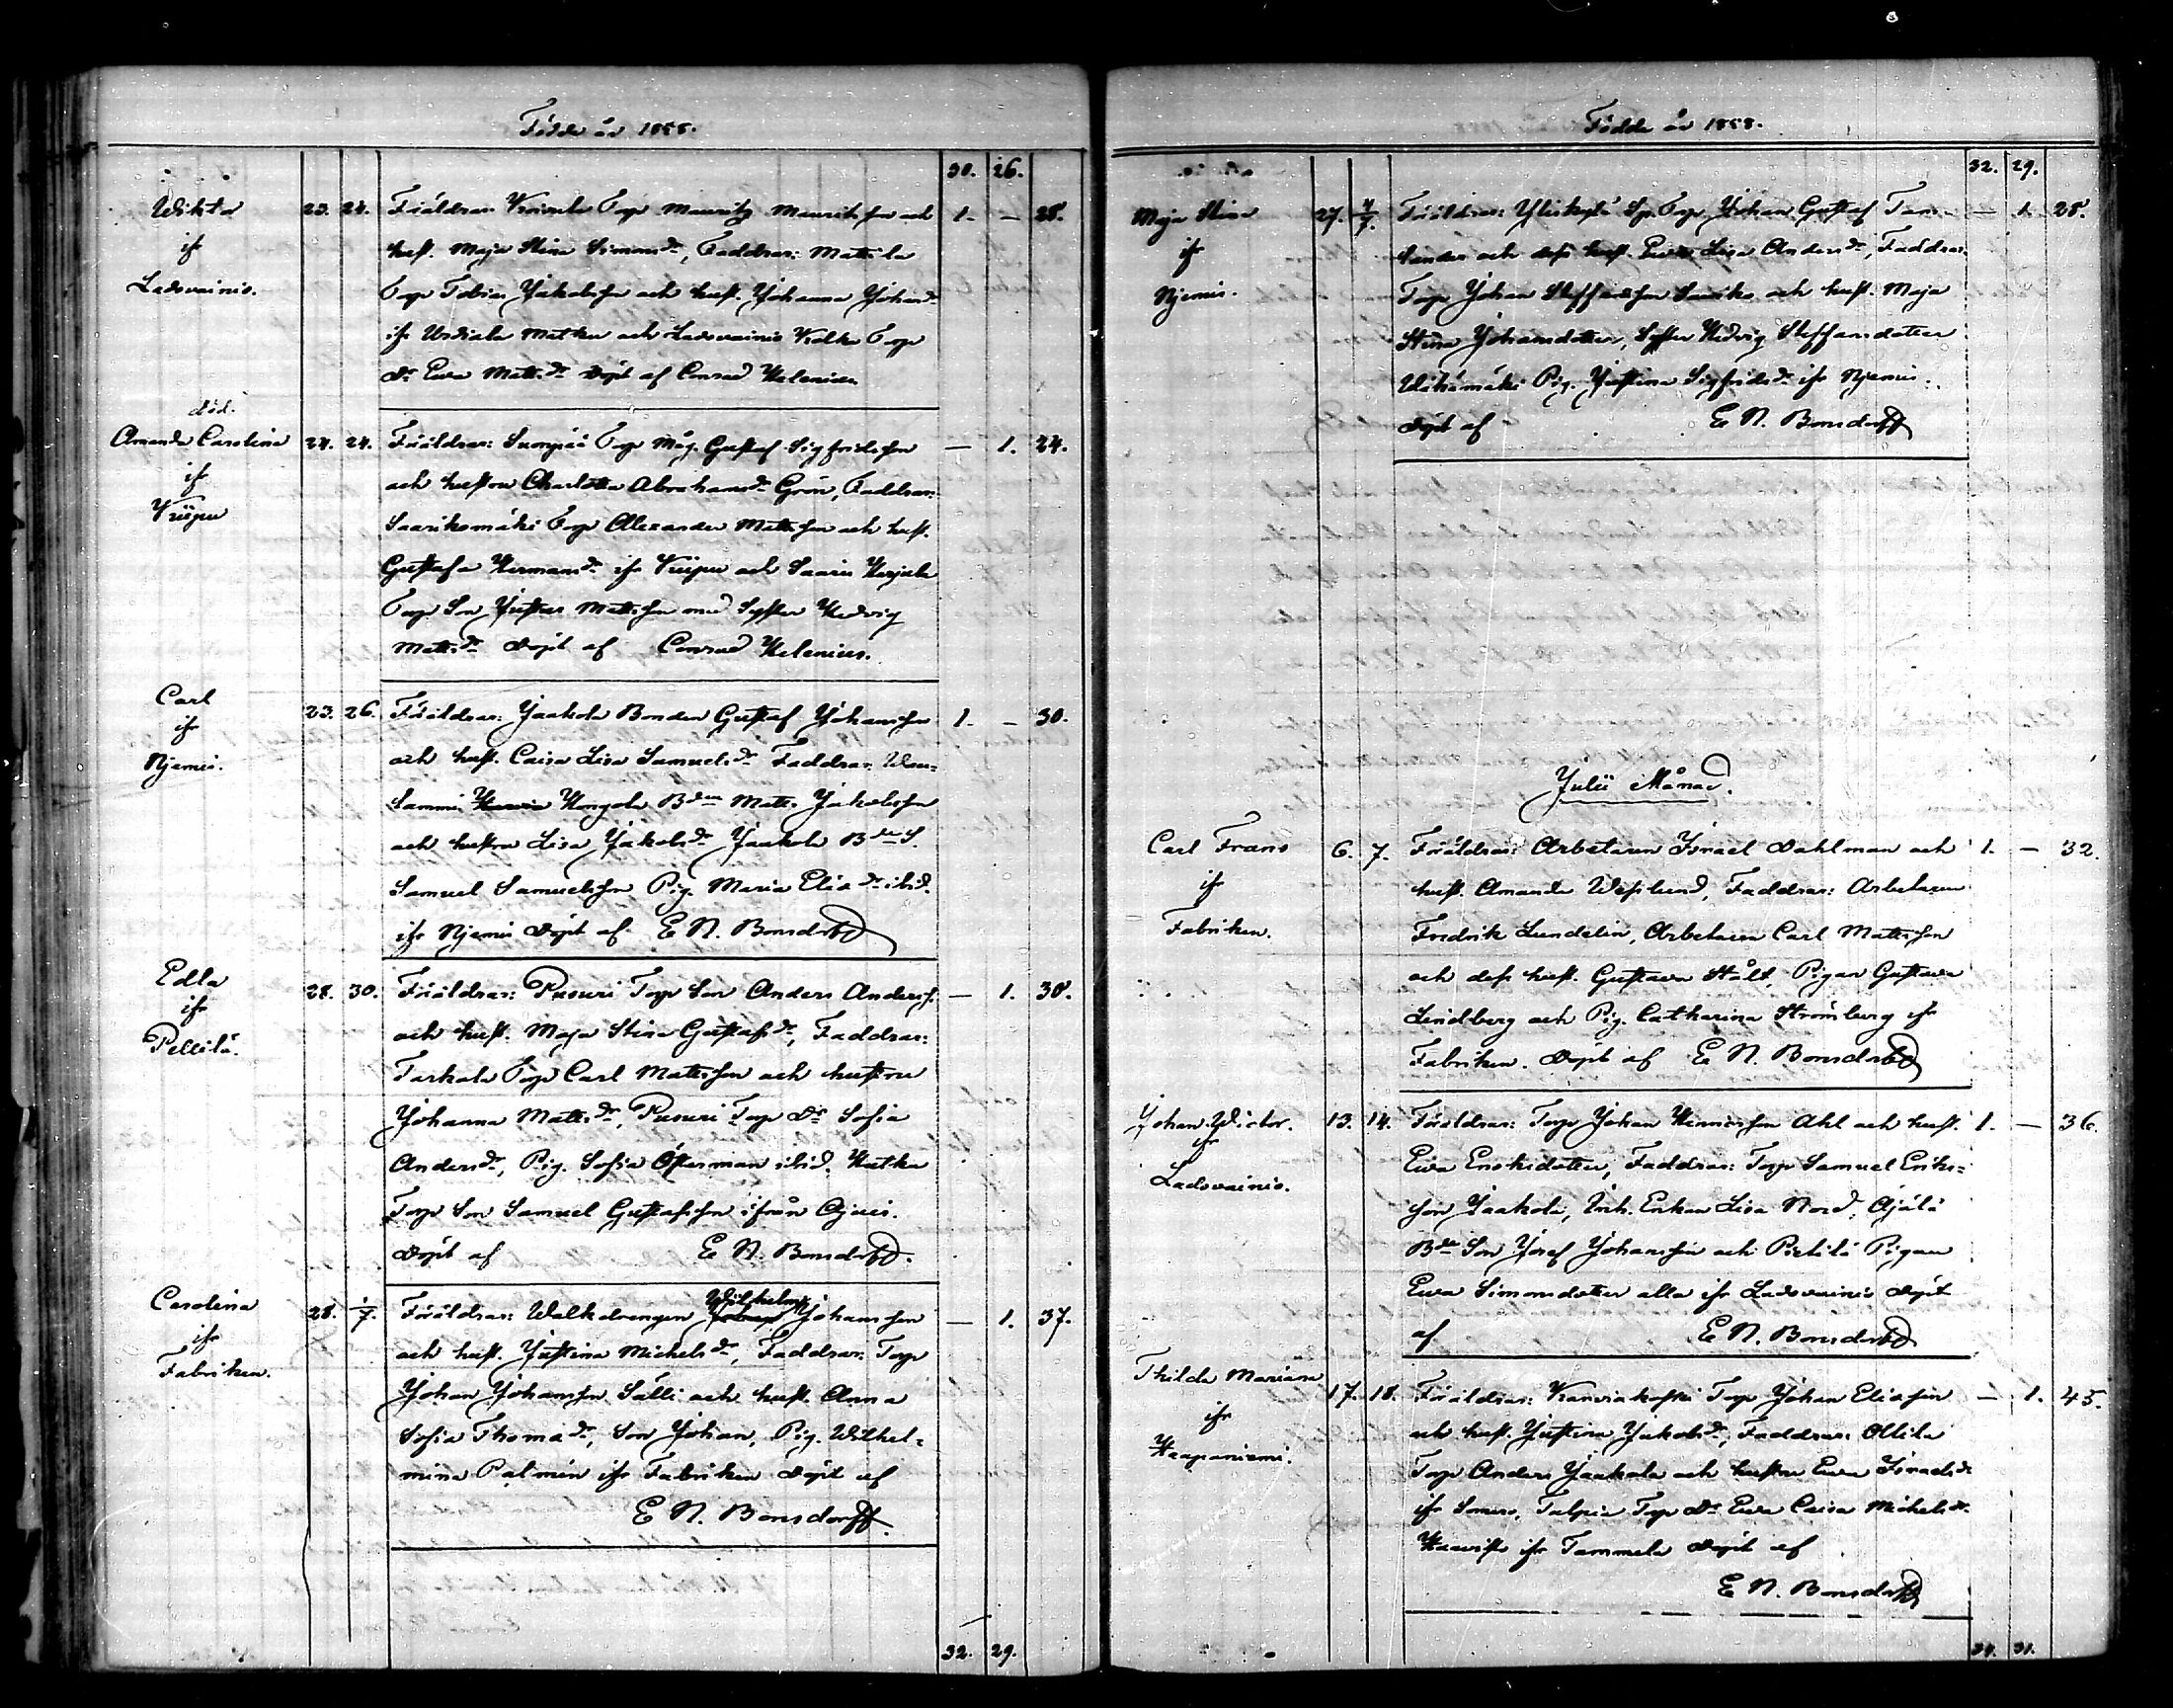 Födde år 1858.
30. 26.
Wiktor 23. 24. Föräldrar: Torp Mauritz Mauritsson och 1. – 28.
ifr hust. Maja Stina Simonsdr, Faddrar: Mattila
Ladvainio. Torp Tobias Jakobsson och hust. Johanna Johansdr
ifr Urdiala Matku och Ladvainio Torp
Dr Eva Mattsdr Döpt af Conrad Helenius
död.
Amanda Carolina 24. 24. Föräldrar: Suonpää Torp Måg. Gustaf Sigfridsson — 1. 24.
ifr och hustru Charlotta Abrahamsdr Grön, Faddrar:
Saariksmäki Torp Alexander Mattsson och hust.
Gustafa Hermansdr ifr och Saaris
Torp Son Justus Mattsson med Syster Hedvig
Mattsdr Döpt af Conrad Helenius.
Carl 23. 26. Föräldrar: Jaakola Bonden Gustaf Johansson 1. – 30.
ifr och hust. Caisa Lisa Samuelsdr Faddrar:
Njemis. Hongola Bden Matts Jakobsson
och hustru Lisa Jakobsdr Jaakola Bde S.
Samuel Samuelsson Pig. Maria Eliædr ibid.
ifr Njemis Döpt af E N. Bonsdorff
Edla 28. 30. Föräldrar: Pusuri Torp Son Anders Anderss. — 1. 38.
ifr och hust. Maja Stina Gustafsdr, Faddrar:
Pellilä. Torp Carl Mattsson och hustru
Johanna Mattsdr, Pusuri Torp Dr Sofia
Andersdr, Pig. Sofia Österman ibid.
Torp Son Samuel Gustafsson ifrån
Döpt af E N. Bonsdorff.
Carolina 28. 1/7. Föräldrar: Wilhelm Johansson — 1. 37.
ifr och hust. Justina Michelsdr, Faddrar: Torp
Fabriken. Johan Johansson Sälli och hust. Anna
Sofia Thomædr, Son Johan, Pig. Wilhel=
mina Palmén ifr Fabriken Döpt af
E N. Bonsdorff.
32. 29.
Födde år 1858.
32. 29.
Maja Stina 27. 4/7. Föräldrar: Torp Johan Gustaf — 1. 28.
ifr och dess hust. Eva Lisa Andersdr, Faddrar:
Njemis. Torp Johan Steffansson och hust. Maja
Stina Johansdotter, Syster Hedvig Steffansdotter
Pig. Justina Sigfridsdr ifr Njemis.
Döpt af E N. Bonsdorff
Julii Månad.
Carl Frans 6. 7. Föräldrar: Arbetaren Israel Dahlman och 1. — 32.
ifr hust. Amanda Wesslund, Faddrar: Arbetaren
Fabriken. Fredrik Lundelin, Arbetaren Carl Mattsson
och dess hust. Gustava Stålt, Pigan Gustava
Lindberg och Pig. Catharina Strömberg ifr
Fabriken. Döpt af E N. Bonsdorff
Johan Victor. 13. 14. Föräldrar: Torp Johan Henricsson Ahl och hust. 1. — 36.
ifr Eva Ericsdotter, Faddrar: Torp Samuel Eriks=
Ladvainio. son Jaakola, Inh. Enkan Lisa Nord,
Bde Son Josef Johansson och Pietilä Pigan
Eva Simonsdotter alla ifr Ladvainio Döpt
af E N. Bonsdorff
Thilda Mariana 17. 18. Föräldrar: Torp Johan Eliasson — 1. 45.
ifr och hust. Justina Jakobsdr, Faddrar: Ollila
Haapaniemi. Torp Anders Jaakola och hustru Eva Israelsdr
ifr Somero, Talpia Torp Dr Eva Caisa Michelsdr
ifr Tammela Döpt af
E N. Bonsdorff
34. 31.